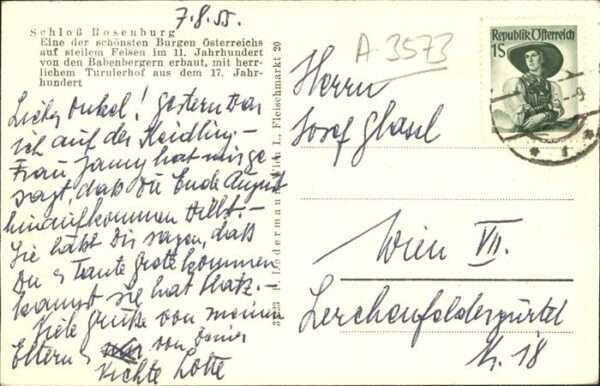 7.8.55.
Schloß Rosenburg
Eine der schönsten Burgen Österreichs
auf steilem Felsen im 11. Jahrhundert
von den Babenbergern erbaut, mit herr-
lichem Turnierhof aus dem 17. Jahr-
hundert
Lieber Onkel! Gestern war
ich auf der Meidling-
Frau Janny hat mir ge
sagt, daß Du Ende August
hinaufkommen willst.-
Sie läßt Dir sagen, daß
Du & Tante Grete kommen
kannst sie hat Platz.-
Viele Grüße von meinen
Eltern & von Deiner
Nichte Lotte
Ledermann, Wien I., Fleischmarkt 20
A 3573
Republik Österreich
1S
Herrn
Josef Glasel
Wien VII.
Lerchenfeldergürtel
Nr. 18